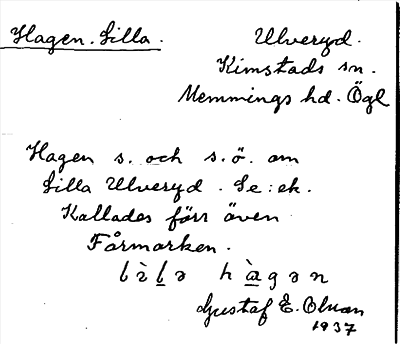 Hagen. Lilla.
Ulveryd.
Kimstads sn.
Memmings hd. Ögl
Hagen s. och s.ö. om
Lilla Ulveryd. Se: ek.
Kallades förr även
Fårmarken.
lìlə hàgən
Gustaf E. Olman
1937